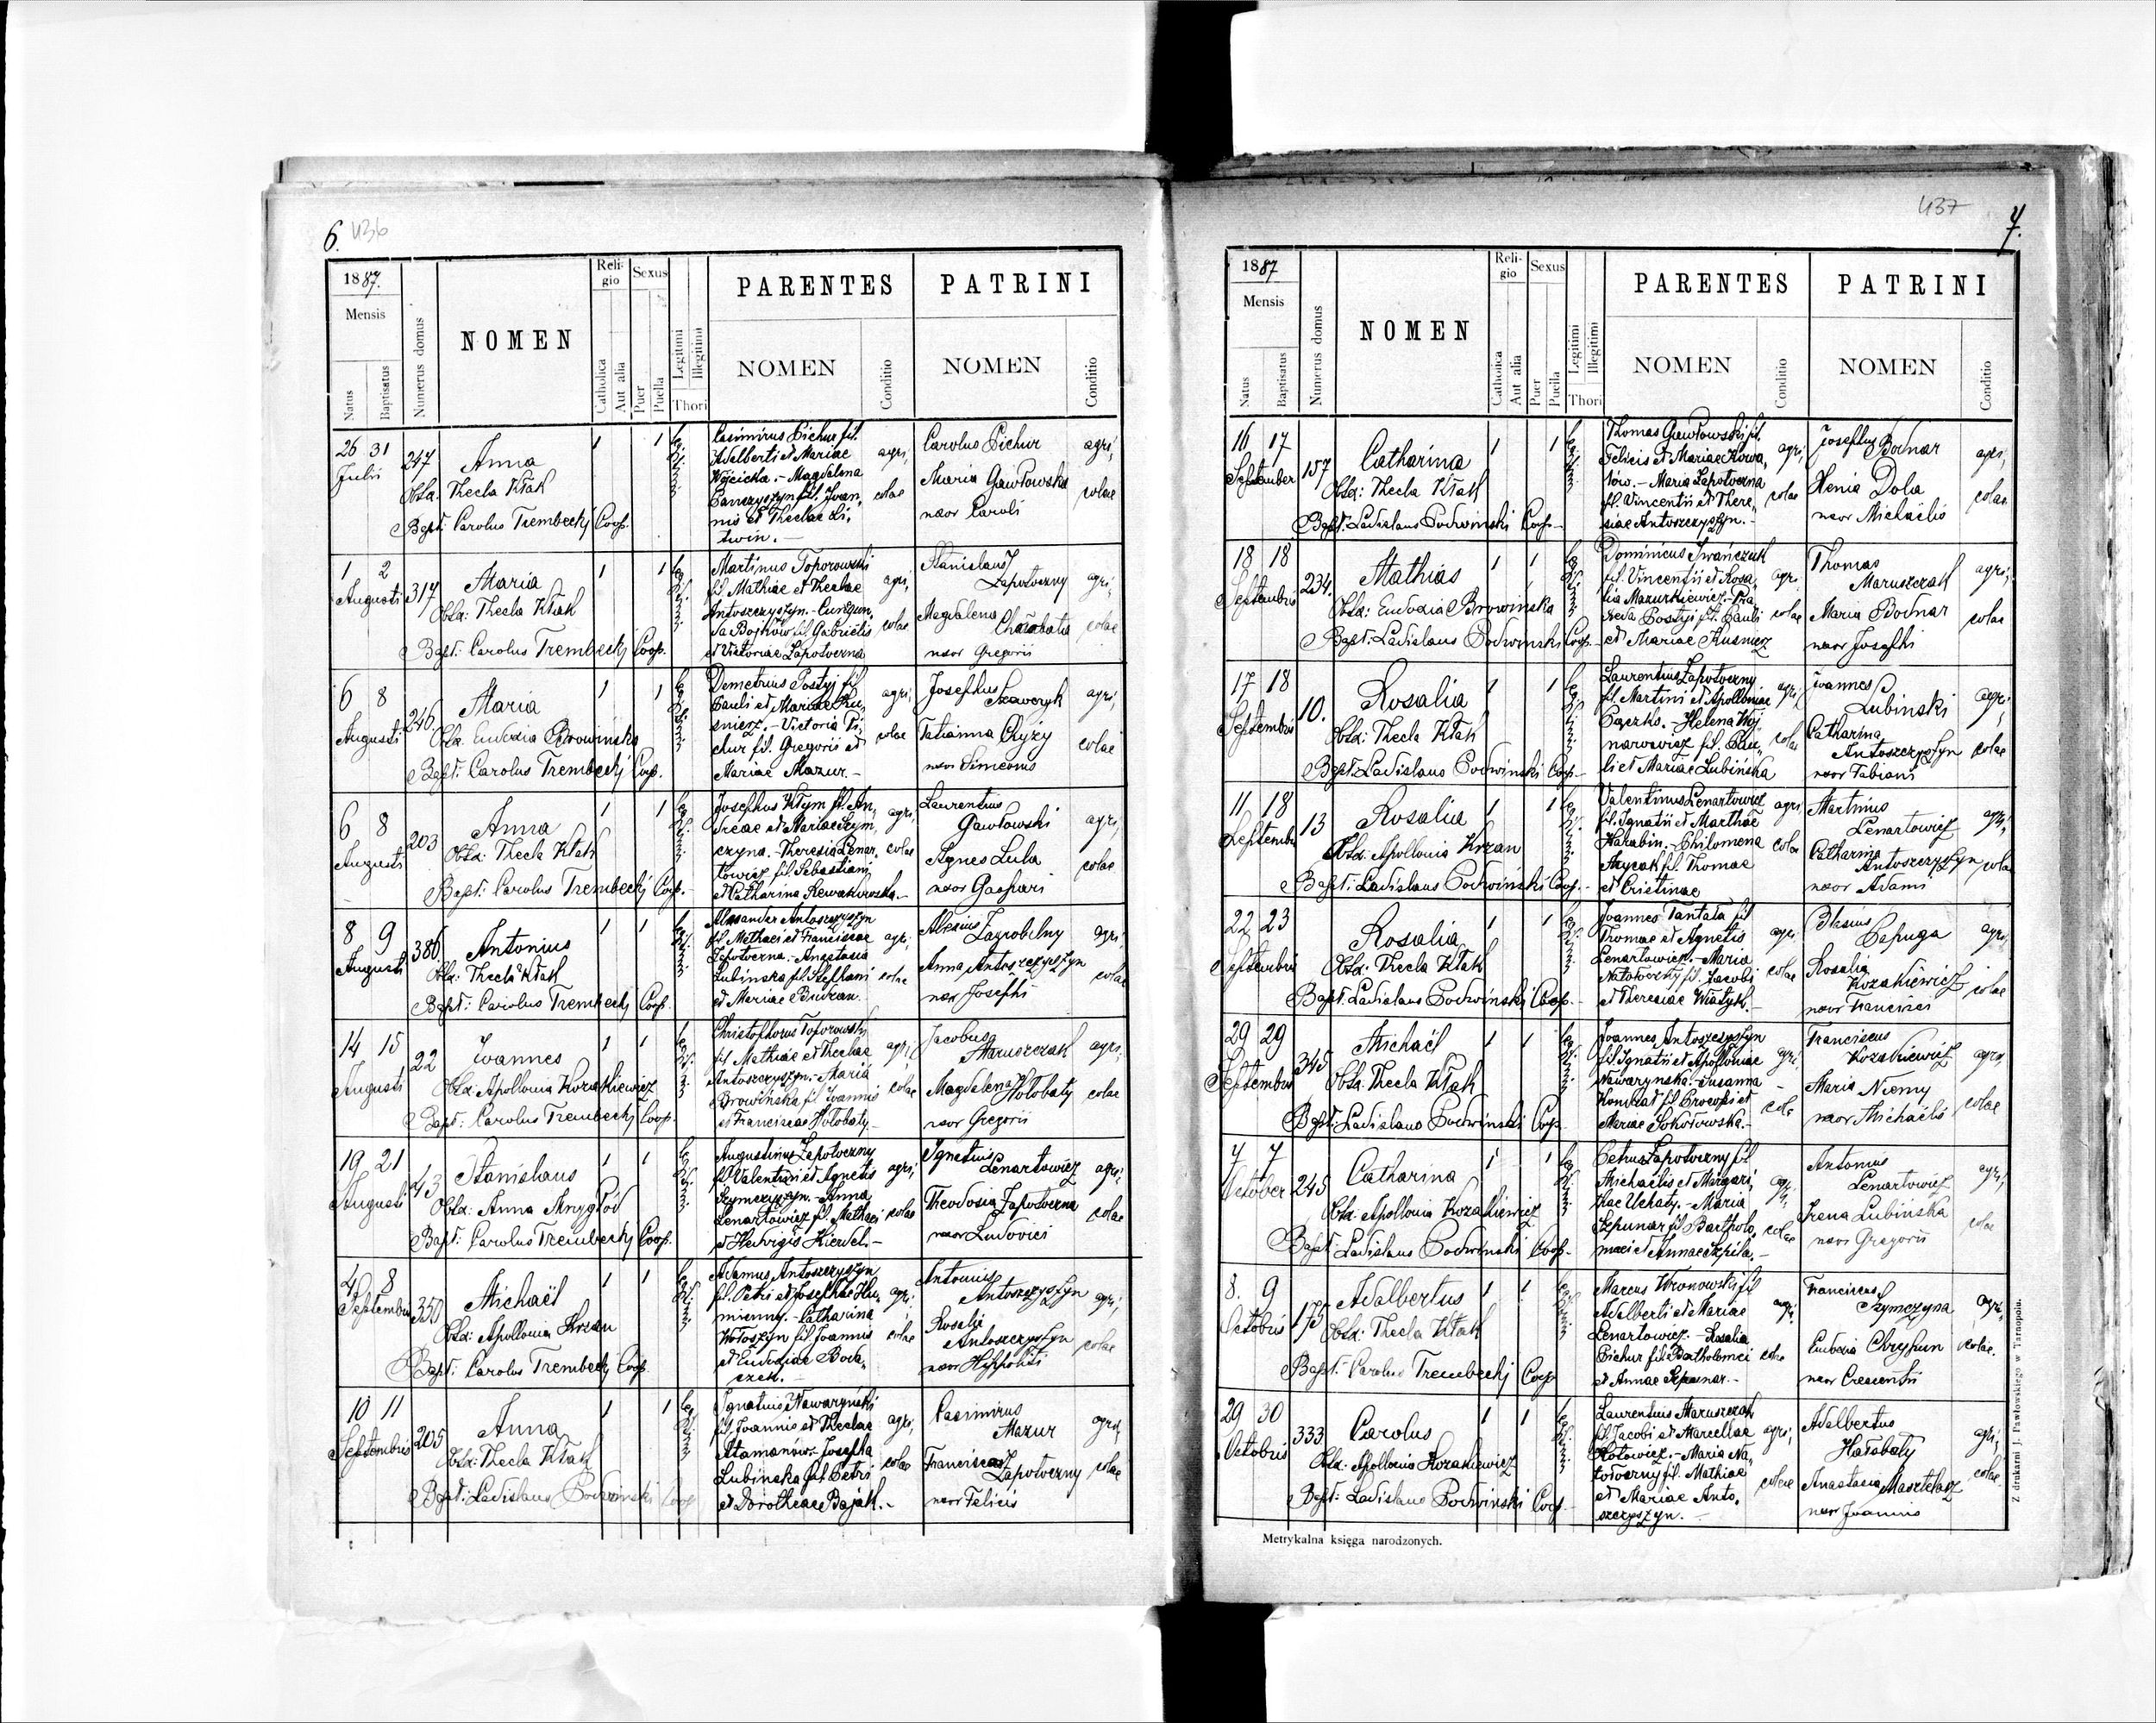 6. 436
1887.
Mensis
Natus
Baptisatus
Numerus domus
NOMEN
Religio
Catholica
Aut alia
Sexus
Puer
Puella
Legitimi
Illegitimi
Thori
PARENTES
NOMEN
Conditio
PATRINI
NOMEN
Conditio
26 31
Julii
247
Anna
Obst: Thecla Kłak
Bapt: Carolus Trembecki Coop.
1 1
Casimirus Pichur fil.
Adalberti et Mariae
Wojcicka. - Magdalena
fil. Joan,
nis et Theclae Li,
twin. -
agri,
colae
Carolus Pichur
Maria Gawłowska
uxor Caroli
agri,
colae
1 2
Augusti
317
Maria
Obst: Thecla Kłak
Bapt: Carolus Trembecki Coop.
1 1
Martinus Toporowski
fil. Mathiae et Theclae
Antoszczyszyn. - Cunegun,
da Bojków fil. Gabrielis
et Victoriae Zapotoczna
agri,
colae
Stanislaus
Zapotoczny
Magdalena
uxor Gregorii
agri,
colae
6 8
Augusti
246
Maria
Obst. Eudoxia Browinska
Bapt: Carolus Trembecki Coop.
1 1
Demetrius Postyj fil.
Pauli et Mariae Ku,
snierz. - Victoria Pi,
chur fil. Gregorii et
Mariae Mazur. -
agri,
colae
Josephus
Szewczyk
Tatianna Chyży
uxor Simeonis
agri,
colae
6 8
Augusti
203
Anna
Obst: Thecla Kłak
Bapt: Carolus Trembecki Coop. -
1 1
Josephus Kłym fil. An,
dreae et Mariae Szym,
czyna. - Theresia Lenar,
towicz fil. Sebastiani
et Catharina
agri,
colae
Laurentius
Gawłowski
Agnes Luba
uxor Gaspari
agri,
colae
8 9
Augusti
386
Antonius
Obst: Thecla Kłak
Bapt: Carolus Trembecki Coop.
1 1
Alexander Antoszczyszyn
fil. Mathaei et Franciscae
Zapotoczna. - Anastasia
Lubinska fil. Stephani
et Mariae Budzan. -
agri,
colae
Alexius Zagrobelny
Anna Antoszczyszyn
uxor Josephi
agri,
colae
14 15
Augusti
22
Joannes
Obst. Apollonia Kozakiewicz
Bapt: Carolus Trembecki Coop.
1 1
Christophorus Toporowski
fil. Mathiae et Theclae
Antoszczyszyn. - Maria
Browińska fil. Joannis
et Franciscae Hołobaty. -
agri,
colae
Jacobus
Maruszczak
Magdalena Hołobaty
uxor Gregorii
agri,
colae
19 21
Augusti
43
Stanislaus
Obst: Anna Mrygłod
Bapt: Carolus Trembecki Coop.
1 1
Augustinus Zapotoczny
fil. Valentini et Agnetis
Szymczyszyn. - Anna
Lenartowicz fil. Mathaei
et Hedvigis Kierd. -
agri,
colae
Ignatius
Lenartowicz
Theodosia Zapotoczna
uxor Ludovici
agri,
colae
4 8
Septembris
350
Michaël
Obst: Apollonia Krzan
Bapt: Carolus Trembecki Coop.
1 1
Adamus Antoszczyszyn
fil. Petri et Josephae Hu,
mienny. - Catharina
Wołoszyn fil. Joannis
et Eudoxiae Boda,
czek. -
agri,
colae
Antonius
Antoszczyszyn
Rosalia
Antoszczyszyn
uxor Hyppoliti
agri,
colae
10 11
Septembris
205
Anna
Obst: Thecla Kłak
Bapt: Ladislaus Podwinski Coop
1 1
Ignatius Nawaryński
fil. Joannis et Theclae
Atamanów. - Josepha
Lubinska fil. Petri
et Dorotheae Bajak. -
agri,
colae
Casimirus
Mazur
Francisca Zapotoczny
uxor Felicis
agri,
colae
437 7.
1887
Mensis
Natus
Baptisatus
Numerus domus
NOMEN
Religio
Catholica
Aut alia
Sexus
Puer
Puella
Legitimi
Illegitimi
Thori
PARENTES
NOMEN
Conditio
PATRINI
NOMEN
Conditio
16 17
September
157
Catharina
Obst: Thecla Kłak
Bapt: Ladislaus Podwinski Coop. -
1 1
Thomas Gawłowski fil.
Felicis et Mariae Korza,
Maria Zapotoczna
fil. Vincentii et There,
siae Antoszczyszyn. -
agri,
colae
Josephus Bodnar
Xenia Dola
uxor Michaëlis
agri,
colae
18 18
Septembris
234.
Mathias
Obst: Eudoxia Browinska
Bapt: Ladislaus Podwinski Coop. -
1 1
Dominicus Iwańczuk
fil. Vincentii et Rosa,
lia Mazurkiewicz. - Pra,
xeda Postyj fil. Pauli
et Mariae Kusnierz
agri
colae
Thomas
Maruszczak
Maria Bodnar
uxor Josephi
agri,
colae
17 18
Septembris
10.
Rosalia
Obst: Thecla Kłak
Bapt: Ladislaus Podwinski Coop. -
1 1
Laurentius Zapotoczny
fil. Martini et Apolloniae
Pączko. - Helena Woj,
narowicz fil. Pau,
li et Mariae Lubińska
agri,
colae
Joannes
Lubinski
Catharina
Antoszczyszyn
uxor Fabiani
agri,
colae
11 18
Septembris
13
Rosalia
Obst: Apollonia Krzan
Bapt: Ladislaus Podwinski Coop. -
1 1
Valentinus Lenartowicz
fil. Ignatii et Marthae
Harabin. - Philomena
fil. Thomae
et Cristinae
agri,
colae
Martinus
Lenartowicz
Catharina
Antoszczyszyn
uxor Adami
agri,
colae
22 23
Septembris
Rosalia
Obst: Thecla Kłak
Bapt: Ladislaus Podwinski Coop. -
1 1
Joannes Tantała fil.
Thomae et Agnetis
Lenartowicz. - Maria
Natołoczny fil. Jacobi
et Theresiae Wiatyk. -
agri,
colae
Blasius
Capuga
Rosalia
Kozakiewicz
uxor Francisci
agri,
colae
29 29
Septembris
345
Michaël
Obst: Thecla Kłak
Bapt: Ladislaus Podwinski Coop. -
1 1
Joannes Antoszczyszyn
fil. Ignatii et Apolloniae
Nawarynska. - Susanna
Konkad fil. Procopii et
Mariae Sokołowska. -
agri,
colae
Franciscus
Kozakiewicz
Maria Niemy
uxor Michaëlis
agri,
colae
7 7
October
245
Catharina
Obst: Apollonia Kozakiewicz
Bapt: Ladislaus Podwinski Coop. -
1 1
Petrus Zapotoczny fil.
Michaëlis et Margari,
thae Uchaty. - Maria
Szpunar fil. Bartholo,
maei et Annae Szpila. -
agri,
colae
Antonius
Lenartowicz
Irena Lubinska
uxor Gregorii
agri,
colae
8. 9
Octobris
175
Adalbertus
Obst: Thecla Kłak
Bapt: Carolus Trembecki Coop
1 1
Marcus Wronowski fil.
Adalberti et Mariae
Lenartowicz. - Rosalia
Pichur fil. Bartholomei
et Annae Szpunar. -
agri,
colae
Franciscus
Szymczyna
Eudoxia Chryhun
uxor Crescentii
agri,
colae.
29 30
Octobris
333
Carolus
Obst: Apollonia Kozakiewicz
Bapt: Ladislaus Podwinski Coop. -
1 1
Laurentius Maruszczak
fil. Jacobi et Marcellae
Kotowicz. - Maria Na,
tołoczny fil. Mathiae
et Mariae Anto,
szczyszyn. -
agri,
colae
Adalbertus
Hałabaty
Anastasia Masztalarz
uxor Joannis
agri,
colae
Metrykalna księga narodzonych.
Z drukarni J. Pawłowskiego w Tarnopolu.